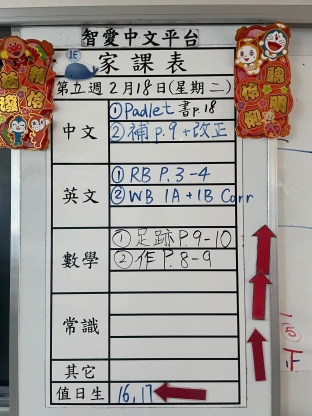 智愛中文平台
1E
家課表
第五週 2月18日(星期二)
中文
①Padlet 書p.18
②補 p.9 + 改正
英文
① RB P.3-4
② WB 1A + 1B Corr
數學
① 足跡 P.9-10
② 作 P.8-9
常識
其它
值日生
16, 17
⑤
正